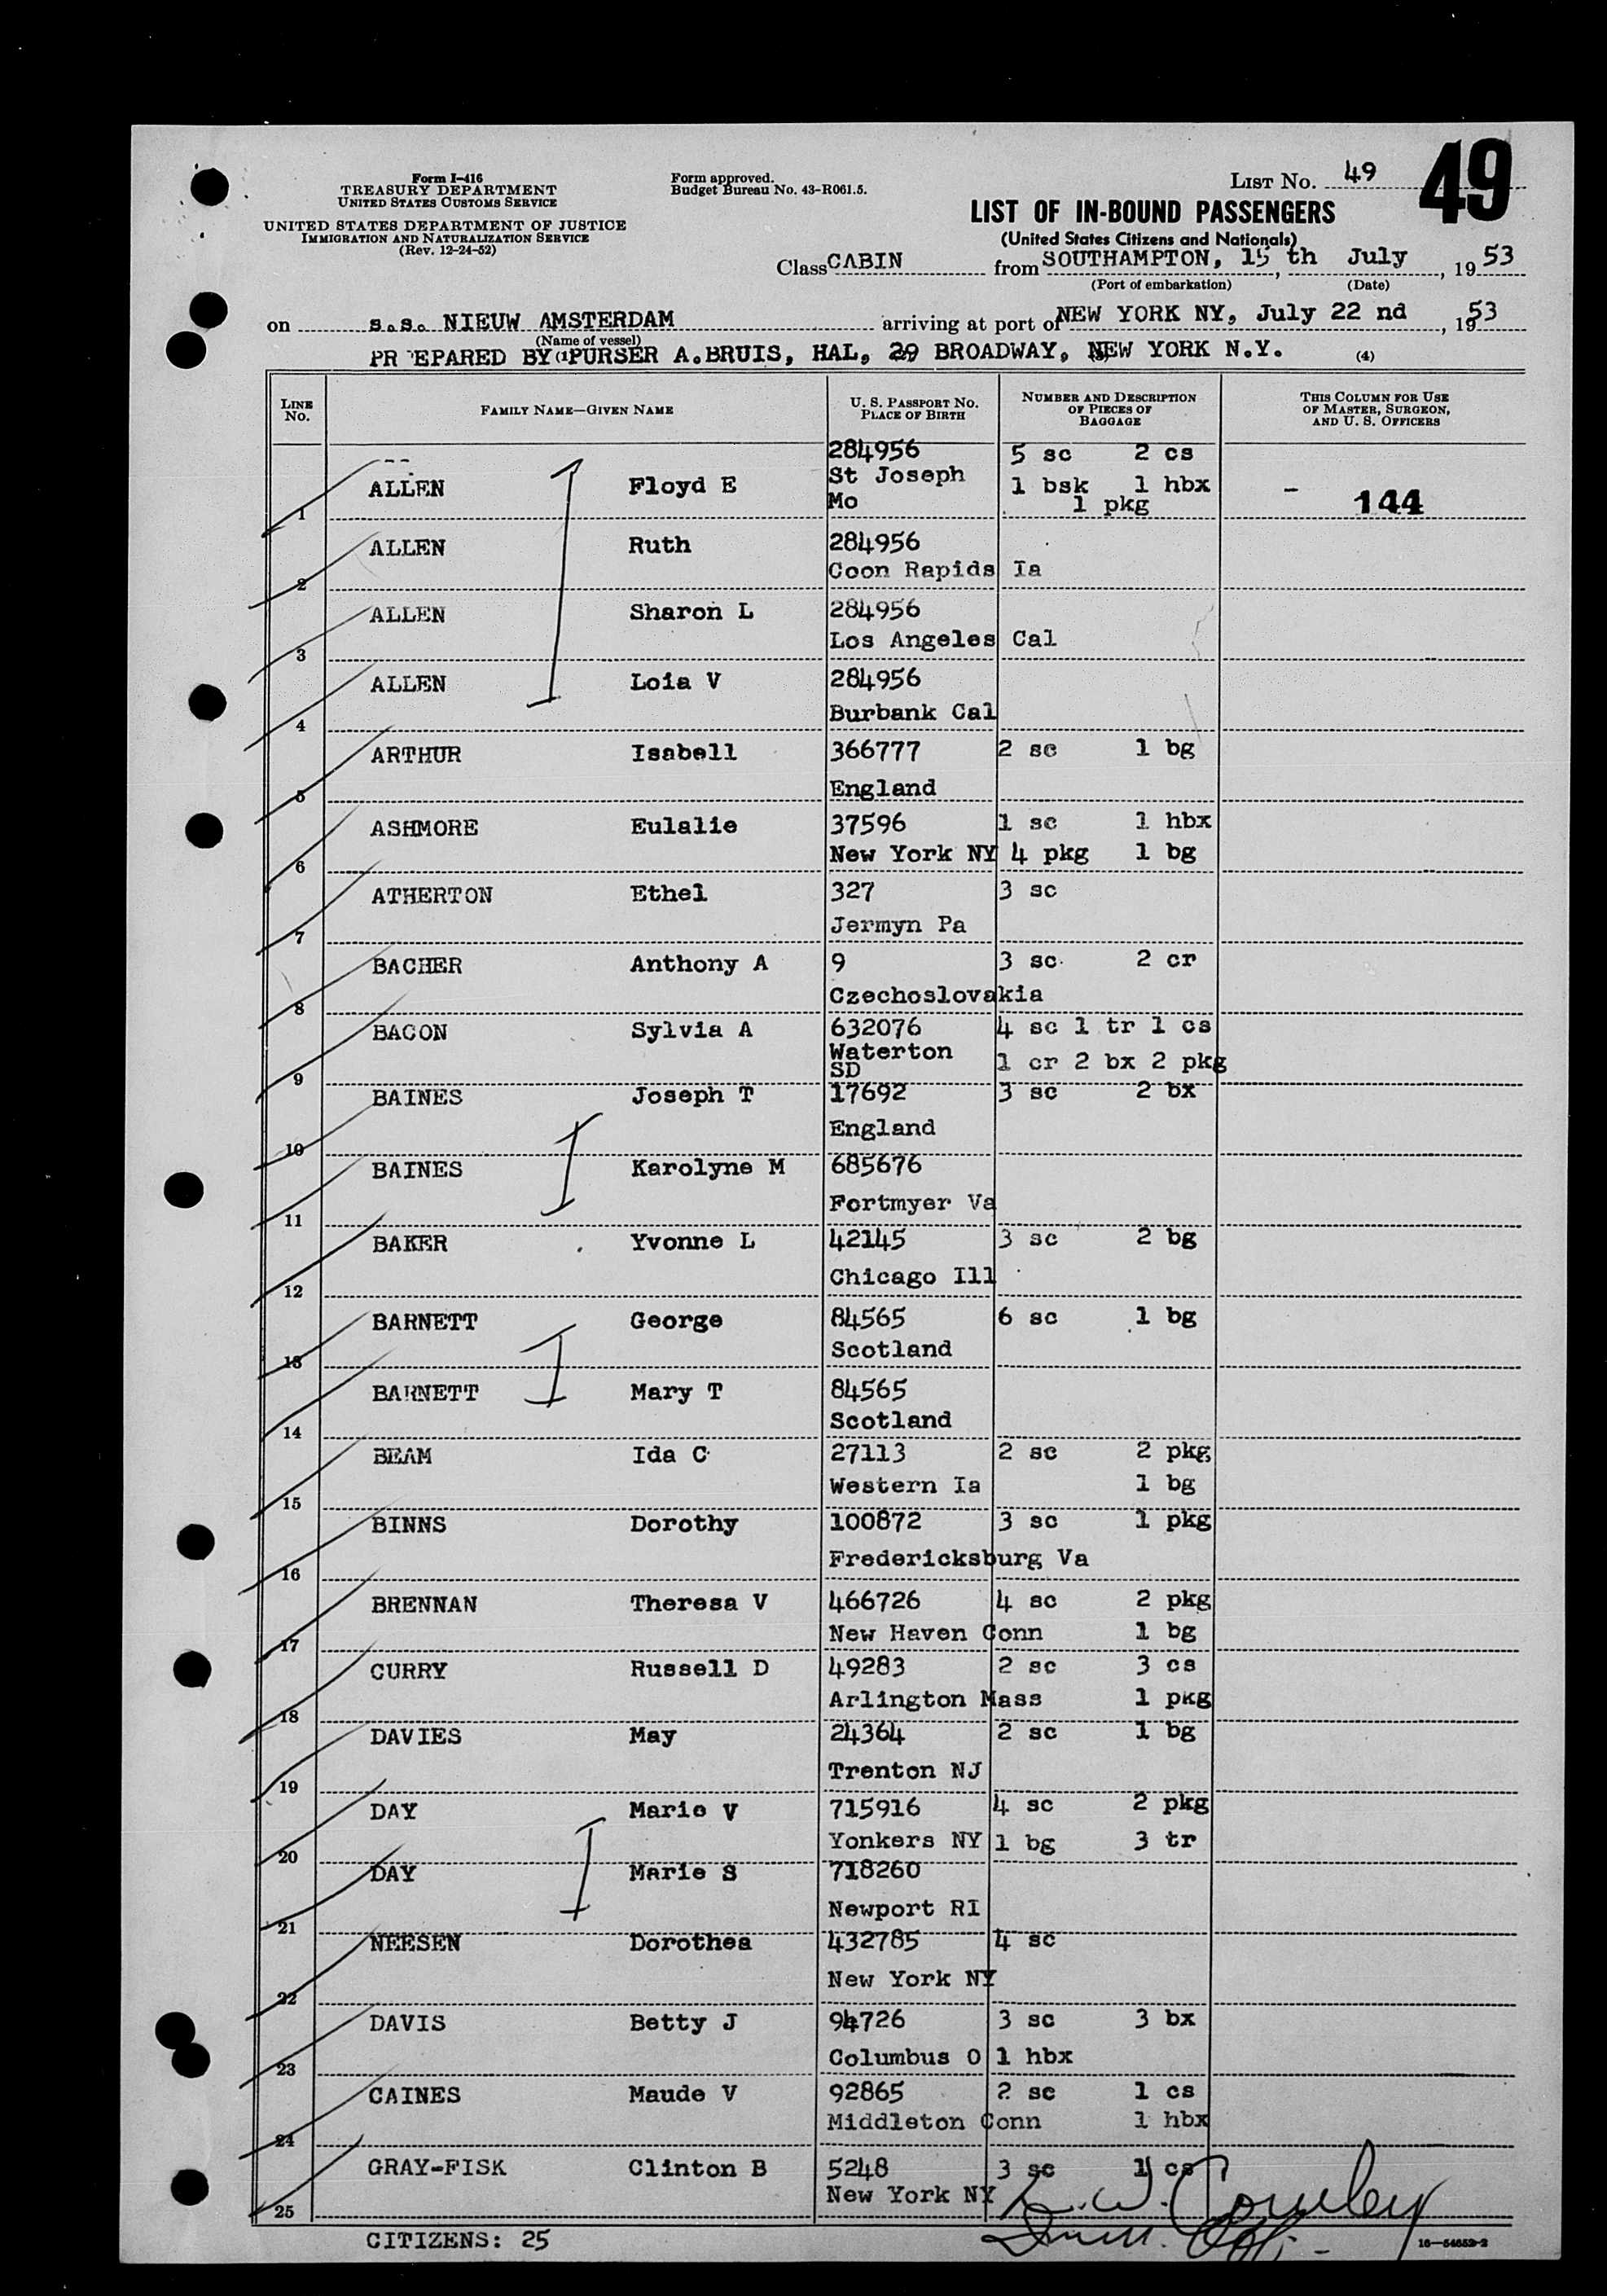 Form I-416
TREASURY DEPARTMENT
UNITED STATES CUSTOMS SERVICE
UNITED STATES DEPARTMENT OF JUSTICE
IMMIGRATION AND NATURALIZATION SERVICE
(Rev. 12-24-52)
Form approved.
Budget Bureau No. 43-R061.5.
LIST NO. 49
49
LIST OF IN-BOUND PASSENGERS
(United States Citizens and Nationals)
Class CABIN from SOUTHAMPTON, 15 th July, 1953
(Port of embarkation) (Date)
on s.s. NIEUW AMSTERDAM arriving at port of NEW YORK NY, July 22 nd, 1953
(Name of vessel)
PR EPARED BY (1 PURSER A.BRUIS, HAL, 29 BROADWAY, NEW YORK N.Y. (4)
LINE No. FAMILY NAME—GIVEN NAME U. S. PASSPORT NO. PLACE OF BIRTH NUMBER AND DESCRIPTION OF PIECES OF BAGGAGE THIS COLUMN FOR USE OF MASTER, SURGEON, AND U. S. OFFICERS
284956 5 sc 2 cs
ALLEN Floyd E St Joseph 1 bsk 1 hbx
1 Mo 1 pkg - 144
ALLEN Ruth 284956
2 Coon Rapids Ia
ALLEN Sharon L 284956
3 Los Angeles Cal
ALLEN Lois V 284956
4 Burbank Cal
ARTHUR Isabell 366777 2 sc 1 bg
5 England
ASHMORE Eulalie 37596 1 sc 1 hbx
6 New York NY 4 pkg 1 bg
ATHERTON Ethel 327 3 sc
7 Jermyn Pa
BACHER Anthony A 9 3 sc 2 cr
8 Czechoslovakia
BACON Sylvia A 632076 4 sc 1 tr 1 cs
Waterton 1 cr 2 bx 2 pkg
9 SD
BAINES Joseph T 17692 3 sc 2 bx
10 England
BAINES Karolyne M 685676
11 Fortmyer Va
BAKER Yvonne L 42145 3 sc 2 bg
12 Chicago Ill
BARNETT George 84565 6 sc 1 bg
13 Scotland
BARNETT Mary T 84565
14 Scotland
BEAM Ida C 27113 2 sc 2 pkg
15 Western Ia 1 bg
BINNS Dorothy 100872 3 sc 1 pkg
16 Fredericksburg Va
BRENNAN Theresa V 466726 4 sc 2 pkg
17 New Haven Conn 1 bg
CURRY Russell D 49283 2 sc 3 cs
18 Arlington Mass 1 pkg
DAVIES May 24364 2 sc 1 bg
19 Trenton NJ
DAY Marie V 715916 4 sc 2 pkg
20 Yonkers NY 1 bg 3 tr
DAY Marie S 718260
21 Newport RI
NEESEN Dorothea 432785 4 sc
22 New York NY
DAVIS Betty J 94726 3 sc 3 bx
23 Columbus O 1 hbx
CAINES Maude V 92865 2 sc 1 cs
24 Middleton Conn 1 hbx
GRAY-FISK Clinton B 5248 3 sc 1 cs
25 New York NY
CITIZENS: 25
16—54652-2